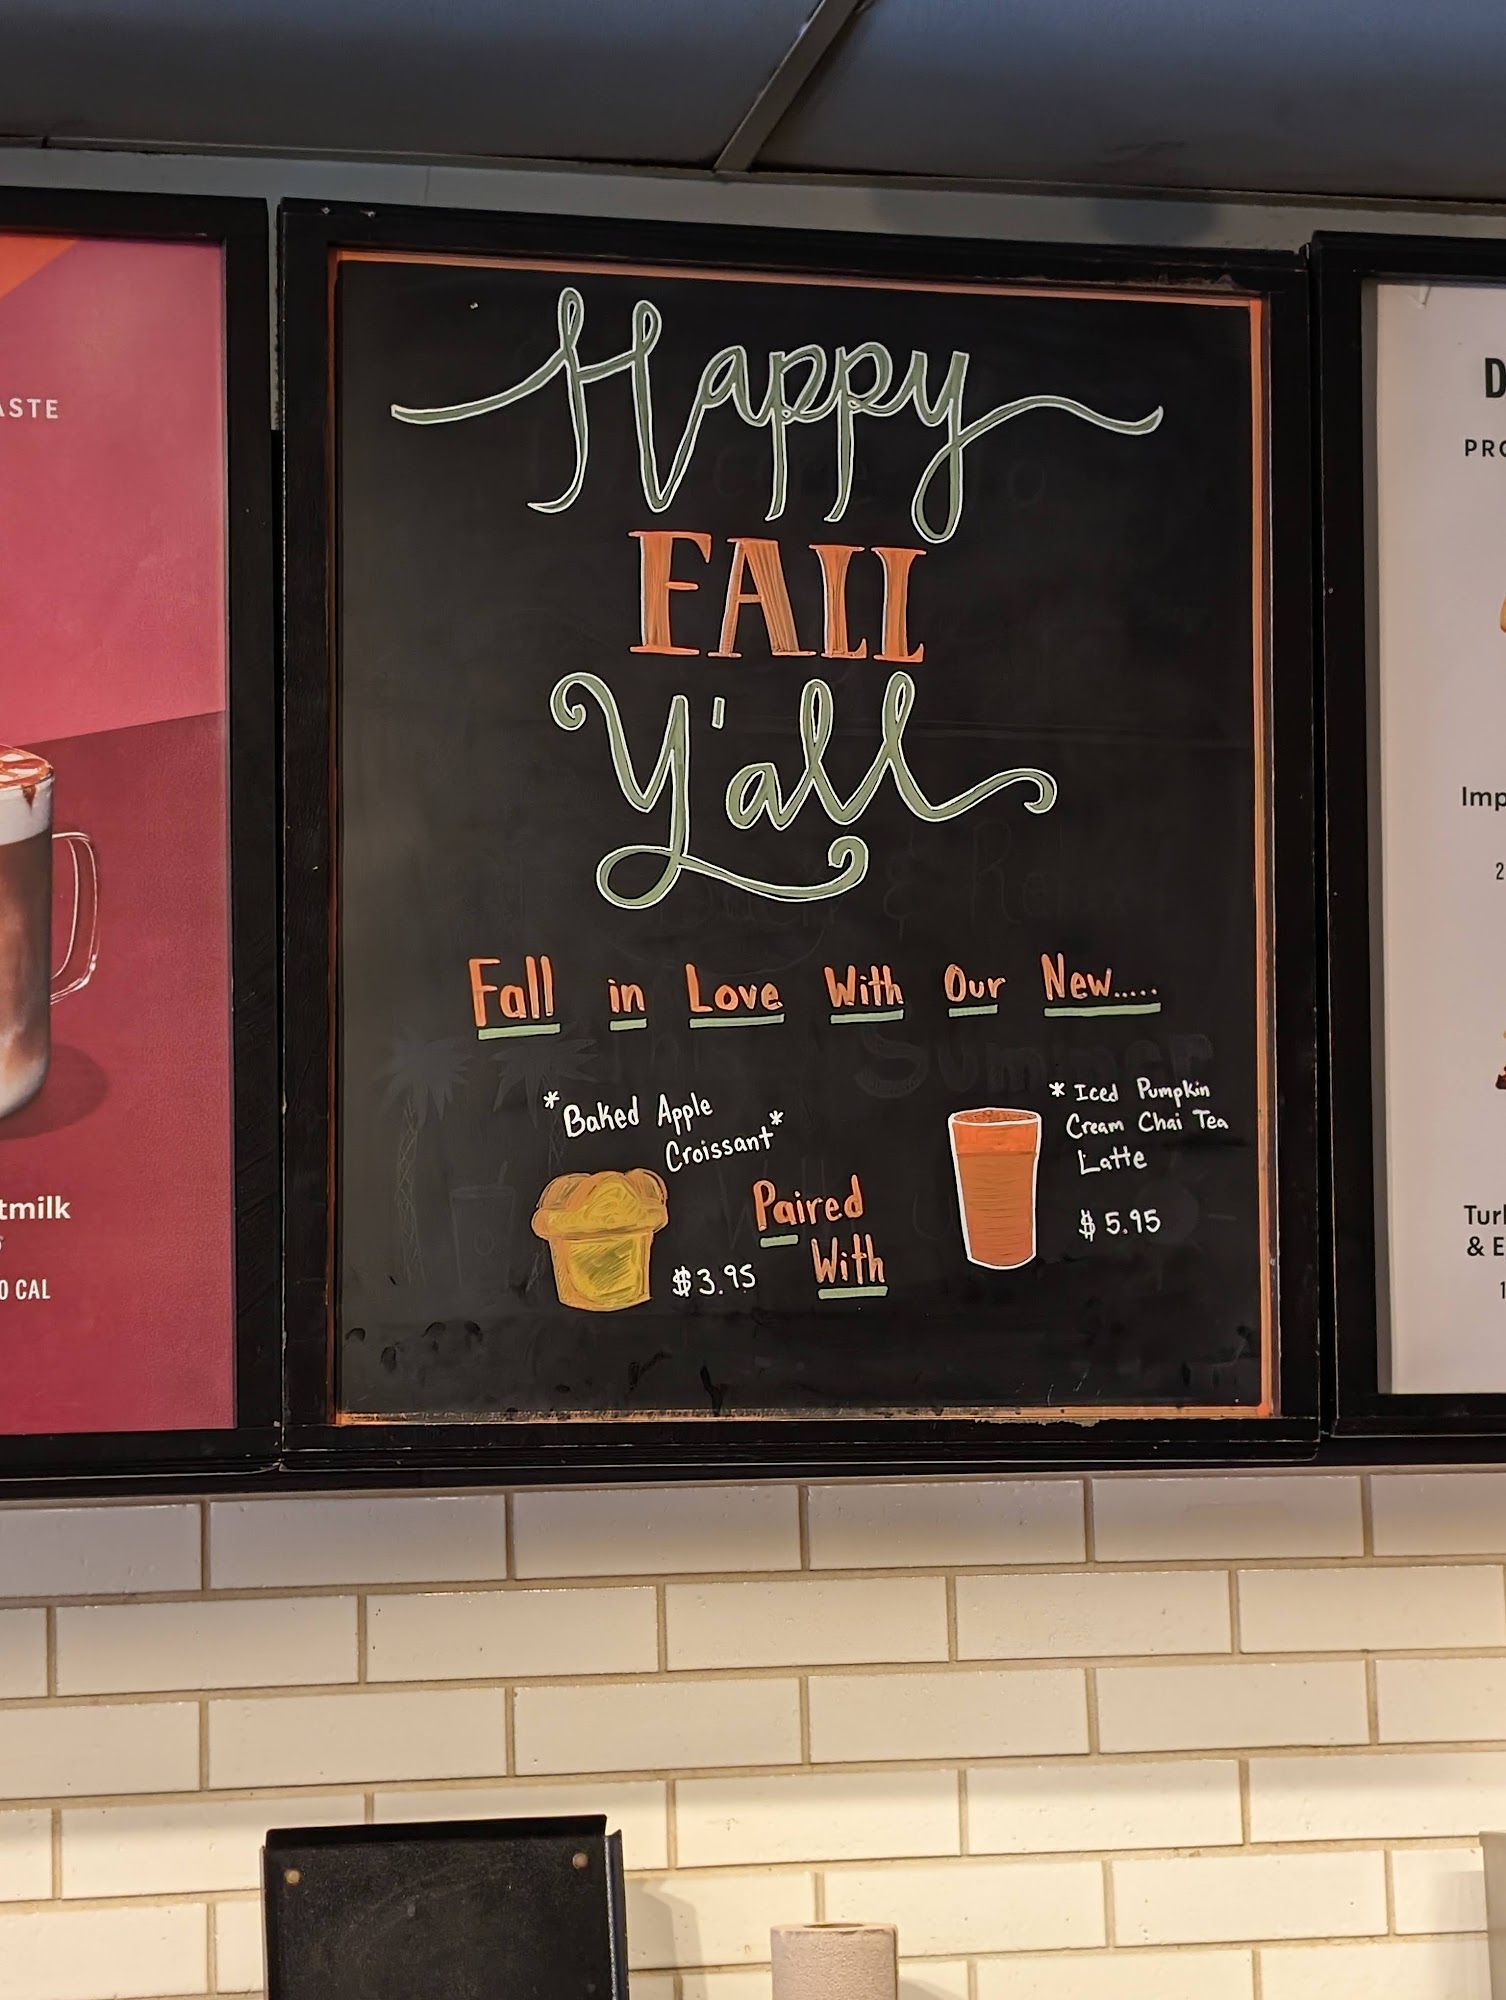 Happy
FALL
Y'all
Fall in Love With Our New.....
*Baked Apple
Croissant*
$3.95
Paired
With
* Iced Pumpkin
Cream Chai Tea
Latte
$5.95
ASTE
0 CAL
PRO
Imp
& E
Summer